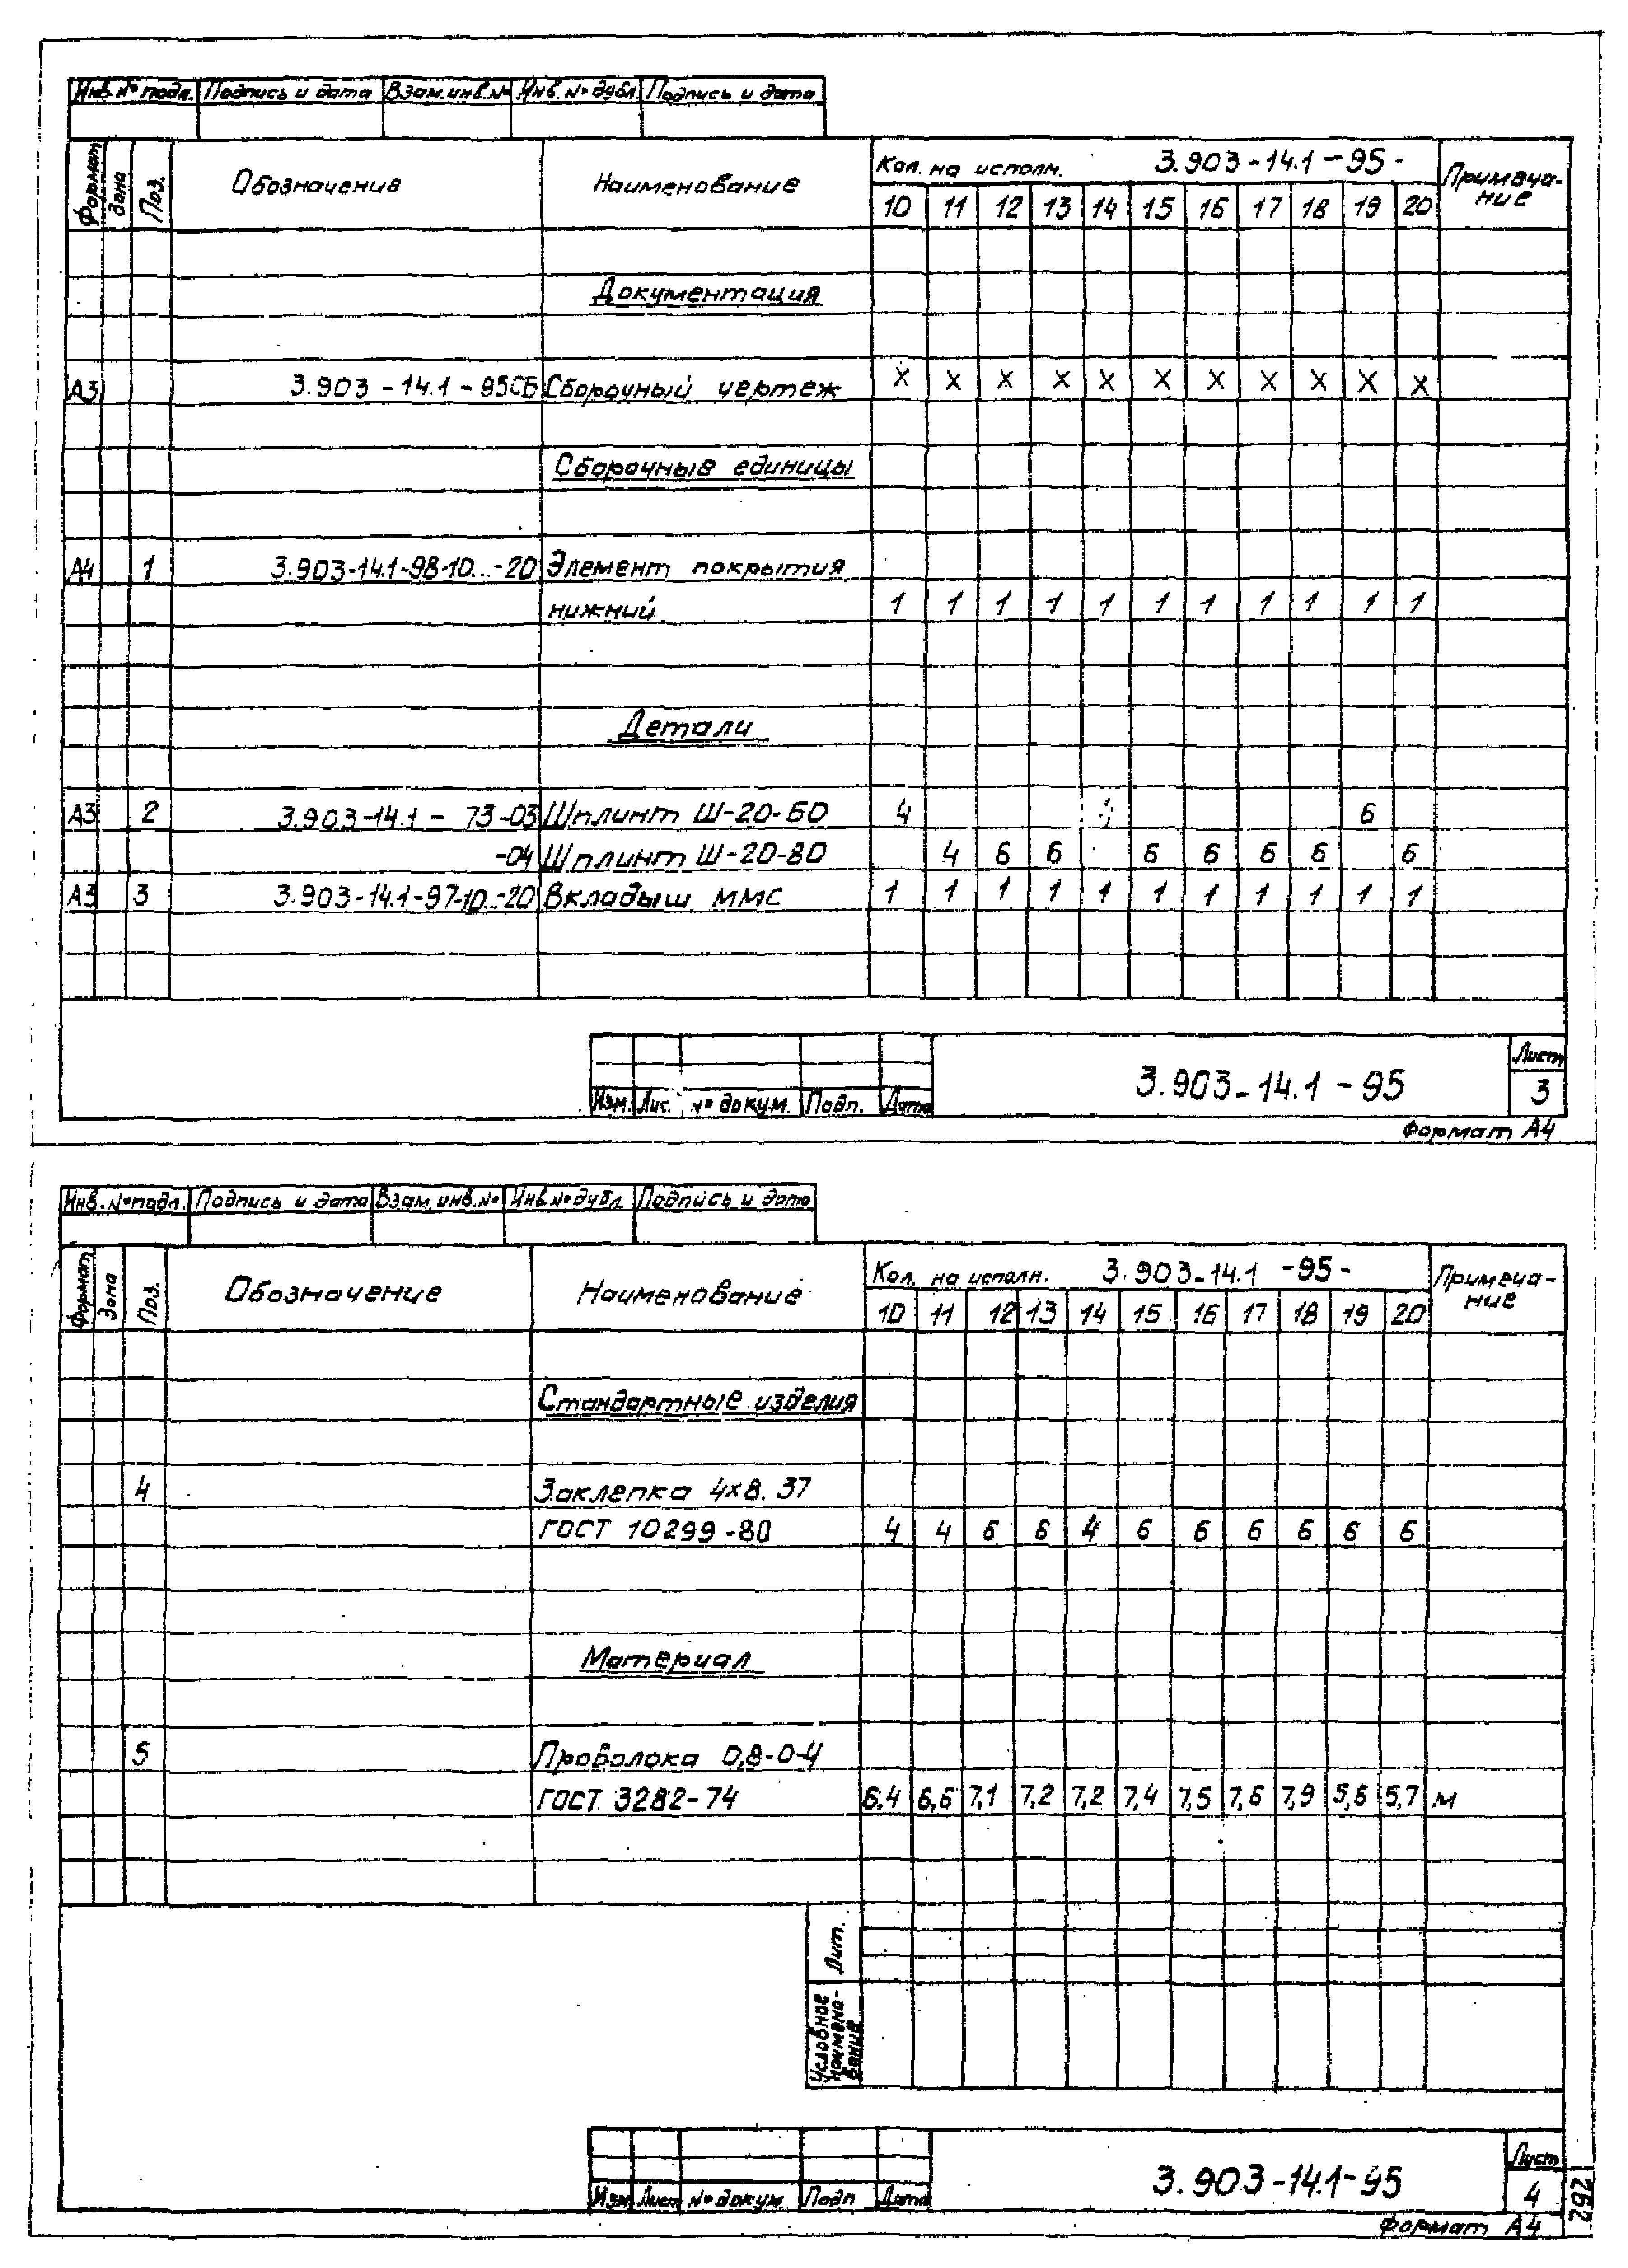 Инв. № подл. Подпись и дата Взам. инв. № Инв. № дубл. Подпись и дата
Формат Зона Поз. Обозначение Наименование Кол. на исполн. 3.903-14.1-95- Примеча-
ние
10 11 12 13 14 15 16 17 18 19 20
Документация
А3 3.903-14.1-95СБ Сборочный чертеж X X X X X X X X X X X
Сборочные единицы
А4 1 3.903-14.1-98-10...-20 Элемент покрытия
нижний 1 1 1 1 1 1 1 1 1 1 1
Детали
А3 2 3.903-14.1-73-03 Шплинт Ш-20-60 4 6
-04 Шплинт Ш-20-80 4 6 6 6 6 6 6 6
А3 3 3.903-14.1-97-10...-20 Вкладыш ММС 1 1 1 1 1 1 1 1 1 1 1
Изм. Лис. № докум. Подп. Дата 3.903-14.1-95 Лист
3
Формат А4
Инв. № подл. Подпись и дата Взам. инв. № Инв. № дубл. Подпись и дата
Формат Зона Поз. Обозначение Наименование Кол. на исполн. 3.903-14.1-95- Примеча-
ние
10 11 12 13 14 15 16 17 18 19 20
Стандартные изделия
4 Заклепка 4х8.37
ГОСТ 10299-80 4 4 6 6 4 6 6 6 6 6 6
Материал
5 Проволока 0,8-0-Ч
ГОСТ 3282-74 6,4 6,6 7,1 7,2 7,2 7,4 7,5 7,6 7,9 5,6 5,7 м
Лит.
Условное
наимено-
вание
Изм Лист № докум. Подп Дата 3.903-14.1-95 Лист
4
Формат А4
292